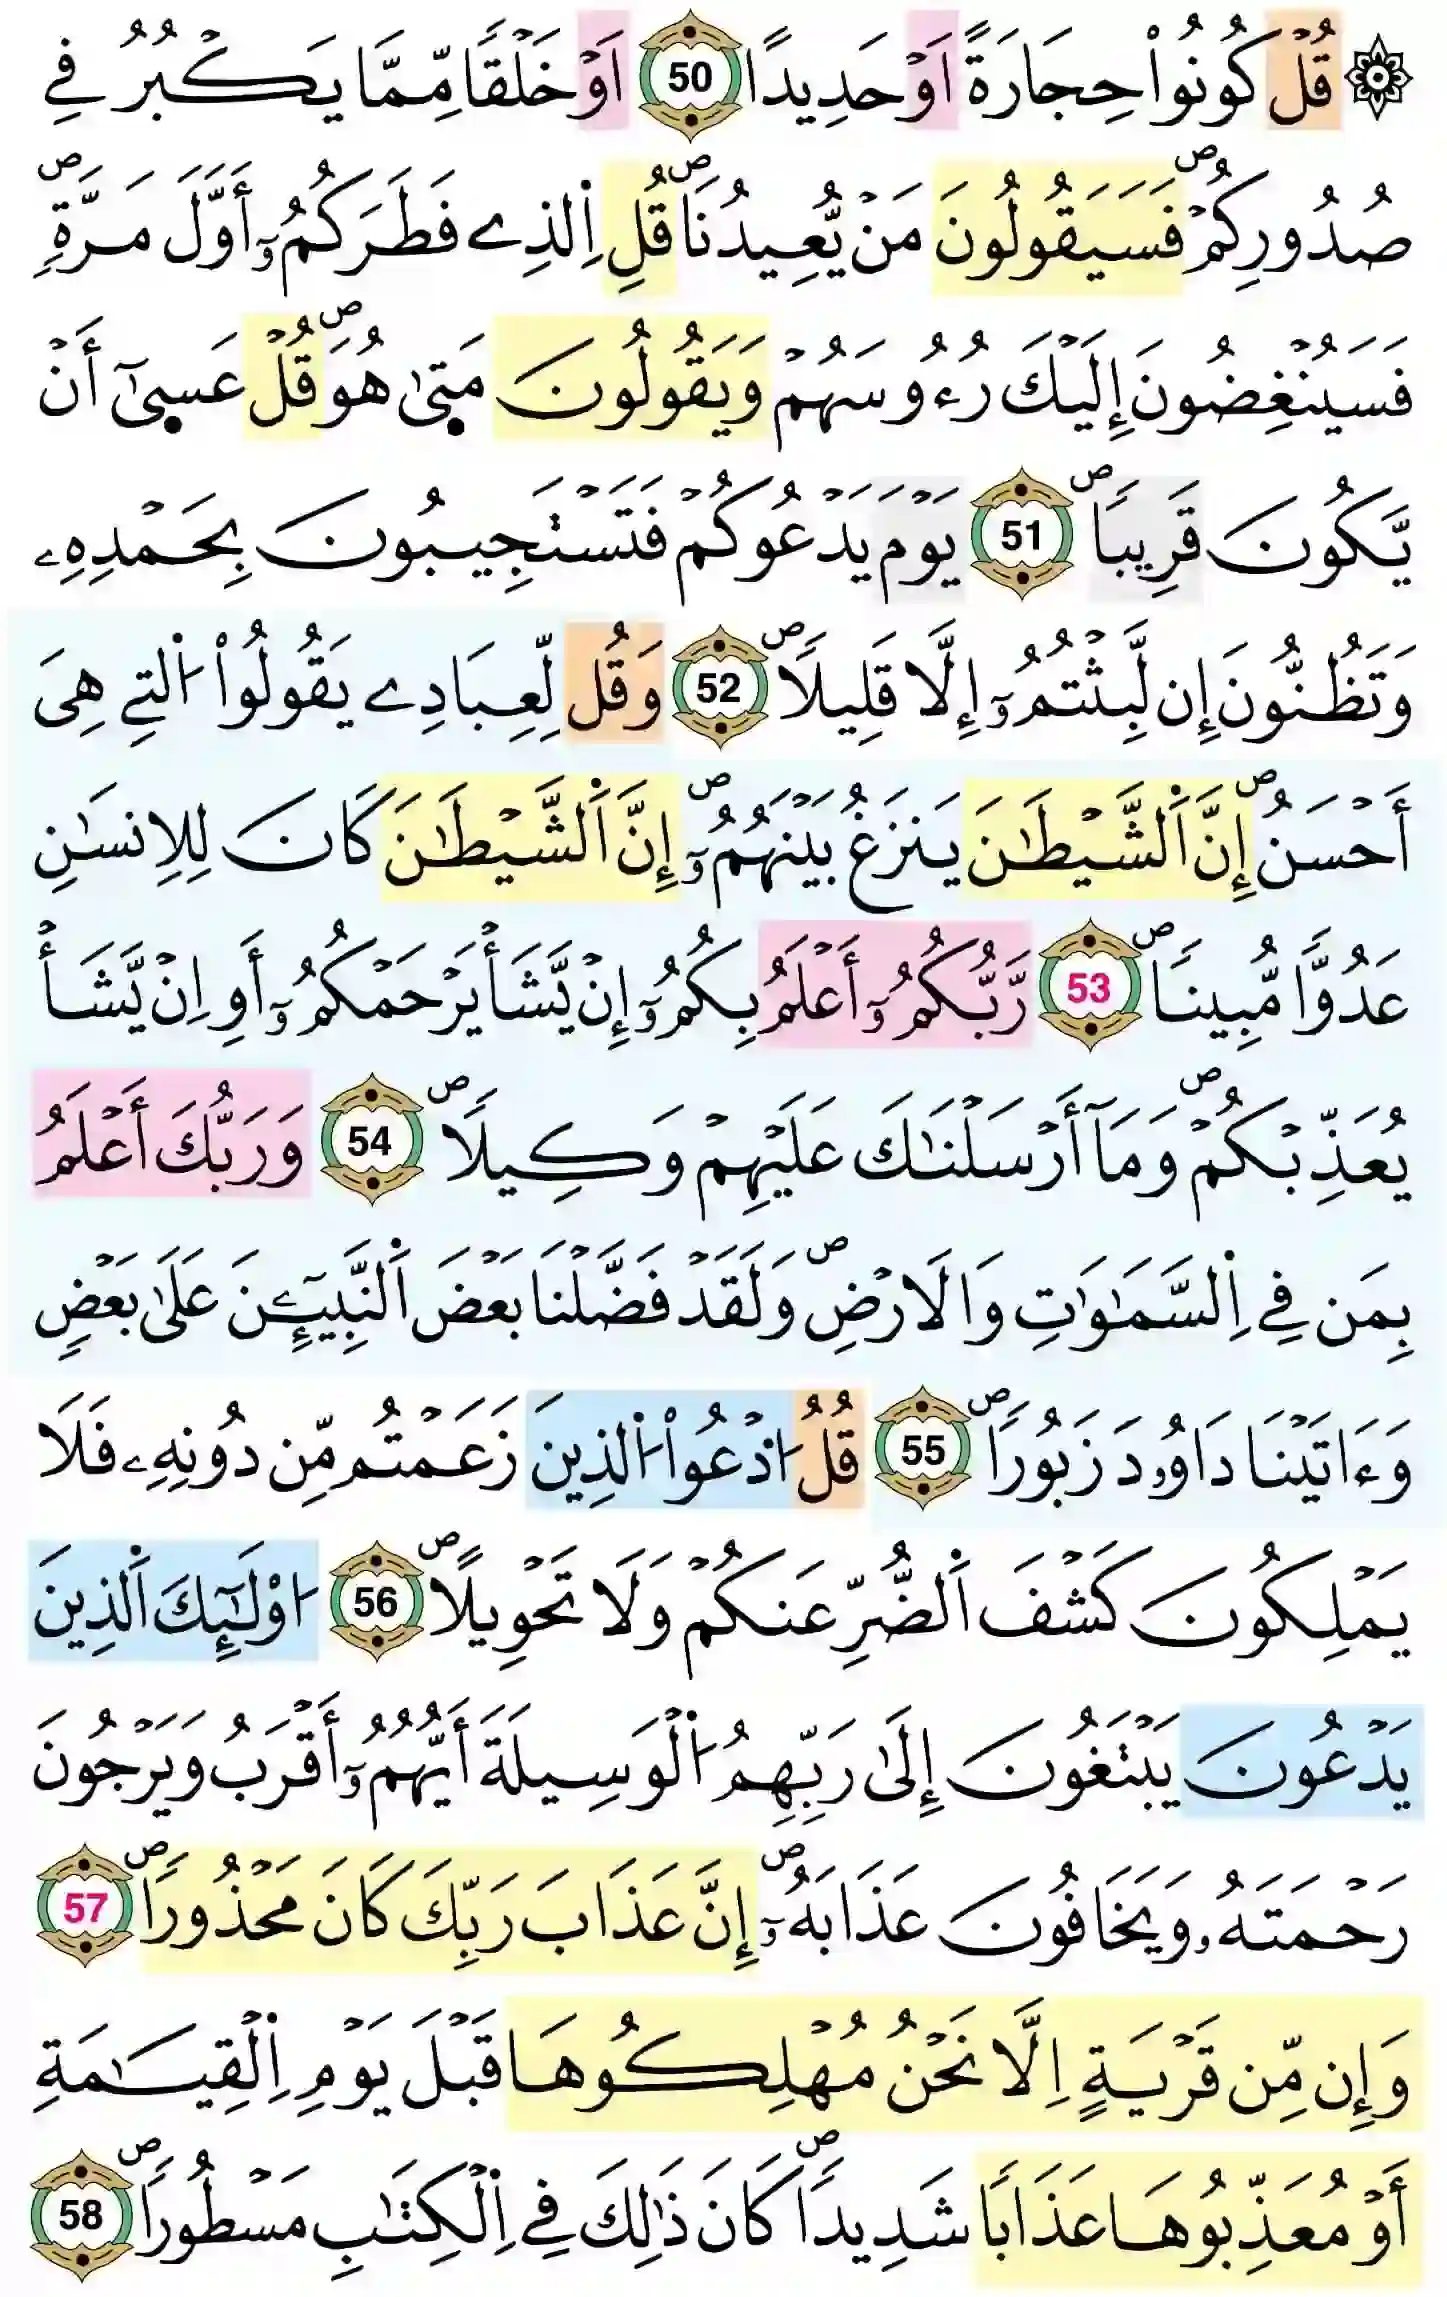 ۞ قُلْ كُونُواْ حِجَارَةً اَوْ حَدِيدًا 50 اَوْ خَلْقًا مِّمَّا يَكْبُرُ فِے
صُدُورِكُمْۖ فَسَيَقُولُونَ مَنْ يُّعِيدُنَاۖ قُلِ اِ۬لذِے فَطَرَكُمُۥٓ أَوَّلَ مَرَّةٖۖ
فَسَيُنْغِضُونَ إِلَيْكَ رُءُوسَهُمْ وَيَقُولُونَ مَت۪يٰ هُوَۖ قُلْ عَس۪يٰٓ أَنْ
يَّكُونَ قَرِيباٗۖ 51 يَوْمَ يَدْعُوكُمْ فَتَسْتَجِيبُونَ بِحَمْدِهِۦ
وَتَظُنُّونَ إِن لَّبِثْتُمُۥٓ إِلَّا قَلِيلاٗۖ 52 وَقُل لِّعِبَادِے يَقُولُواْ اُ۬لتِے هِيَ
أَحْسَنُۖ إِنَّ اَ۬لشَّيْطَٰنَ يَنزَغُ بَيْنَهُمُۥٓۖ إِنَّ اَ۬لشَّيْطَٰنَ كَانَ لِلِانسَٰنِ
عَدُوّاٗ مُّبِيناٗۖ 53 رَّبُّكُمُۥٓ أَعْلَمُ بِكُمُۥٓ إِنْ يَّشَأْ يَرْحَمْكُمُۥٓ أَوِ اِنْ يَّشَأْ
يُعَذِّبْكُمْۖ وَمَآ أَرْسَلْنَٰكَ عَلَيْهِمْ وَكِيلاٗۖ 54 وَرَبُّكَ أَعْلَمُ
بِمَن فِے اِ۬لسَّمَٰوَٰتِ وَالَارْضِۖ وَلَقَدْ فَضَّلْنَا بَعْضَ اَ۬لنَّبِيٓـِٕۧنَ عَلَىٰ بَعْضٖ
وَءَاتَيْنَا دَاوُۥدَ زَبُوراٗۖ 55 قُلُ اُ۟دْعُواْ اُ۬لذِينَ زَعَمْتُم مِّن دُونِهِۦ فَلَا
يَمْلِكُونَ كَشْفَ اَ۬لضُّرِّ عَنكُمْ وَلَا تَحْوِيلاًۖ 56 اُوْلَٰٓئِكَ اَ۬لذِينَ
يَدْعُونَ يَبْتَغُونَ إِلَىٰ رَبِّهِمُ اُ۬لْوَسِيلَةَ أَيُّهُمُۥٓ أَقْرَبُ وَيَرْجُونَ
رَحْمَتَهُۥ وَيَخَافُونَ عَذَابَهُۥٓۖ إِنَّ عَذَابَ رَبِّكَ كَانَ مَحْذُوراٗۖ 57
وَإِن مِّن قَرْيَةٍ اِلَّا نَحْنُ مُهْلِكُوهَا قَبْلَ يَوْمِ اِ۬لْقِيَٰمَةِ
أَوْ مُعَذِّبُوهَا عَذَاباٗ شَدِيداٗۖ كَانَ ذَٰلِكَ فِے اِ۬لْكِتَٰبِ مَسْطُوراٗۖ 58